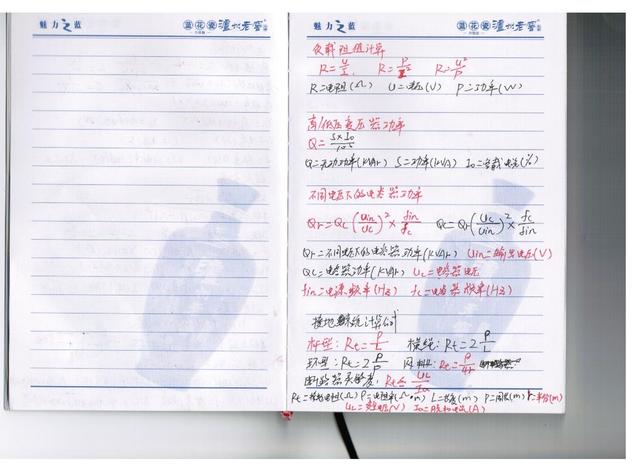 魅力之蓝
蓝花瓷 泸州老窖
魅力之蓝
蓝花瓷 泸州老窖
负载阻值计算
R=U/I, R=P/I² R=U²/P
R=电阻(Ω) U=电压(V) P=功率(W)
高/低压变压器功率
Q=S×I₀/10²
Q=无功功率(kVAr) S=功率(kVA) I₀=空载电流(%)
不同电压下的电容器功率
Qr=Qc(Uin/Uc)²×fin/fc Qc=Qr(Uc/Uin)²×fc/fin
Qr=不同电压下的电容器功率(kVAr) Uin=输出电压(V)
Qc=电容器功率(kVAr) Uc=电容器电压
fin=电源频率(Hz) fc=电容器频率(Hz)
接地系统计算公式
杆型: Rt=ρ/L 横绳: Rt=2ρ/L
环型: Rt=2ρ/P 网状: Rt=ρ/4r
断路器灵敏度: Rt≤UL/Ia
Rt=接地电阻(Ω) ρ=电阻率(Ω·m) L=长度(m) P=周长(m) r=半径(m)
UL=电压(V) Ia=脱扣电流(A)